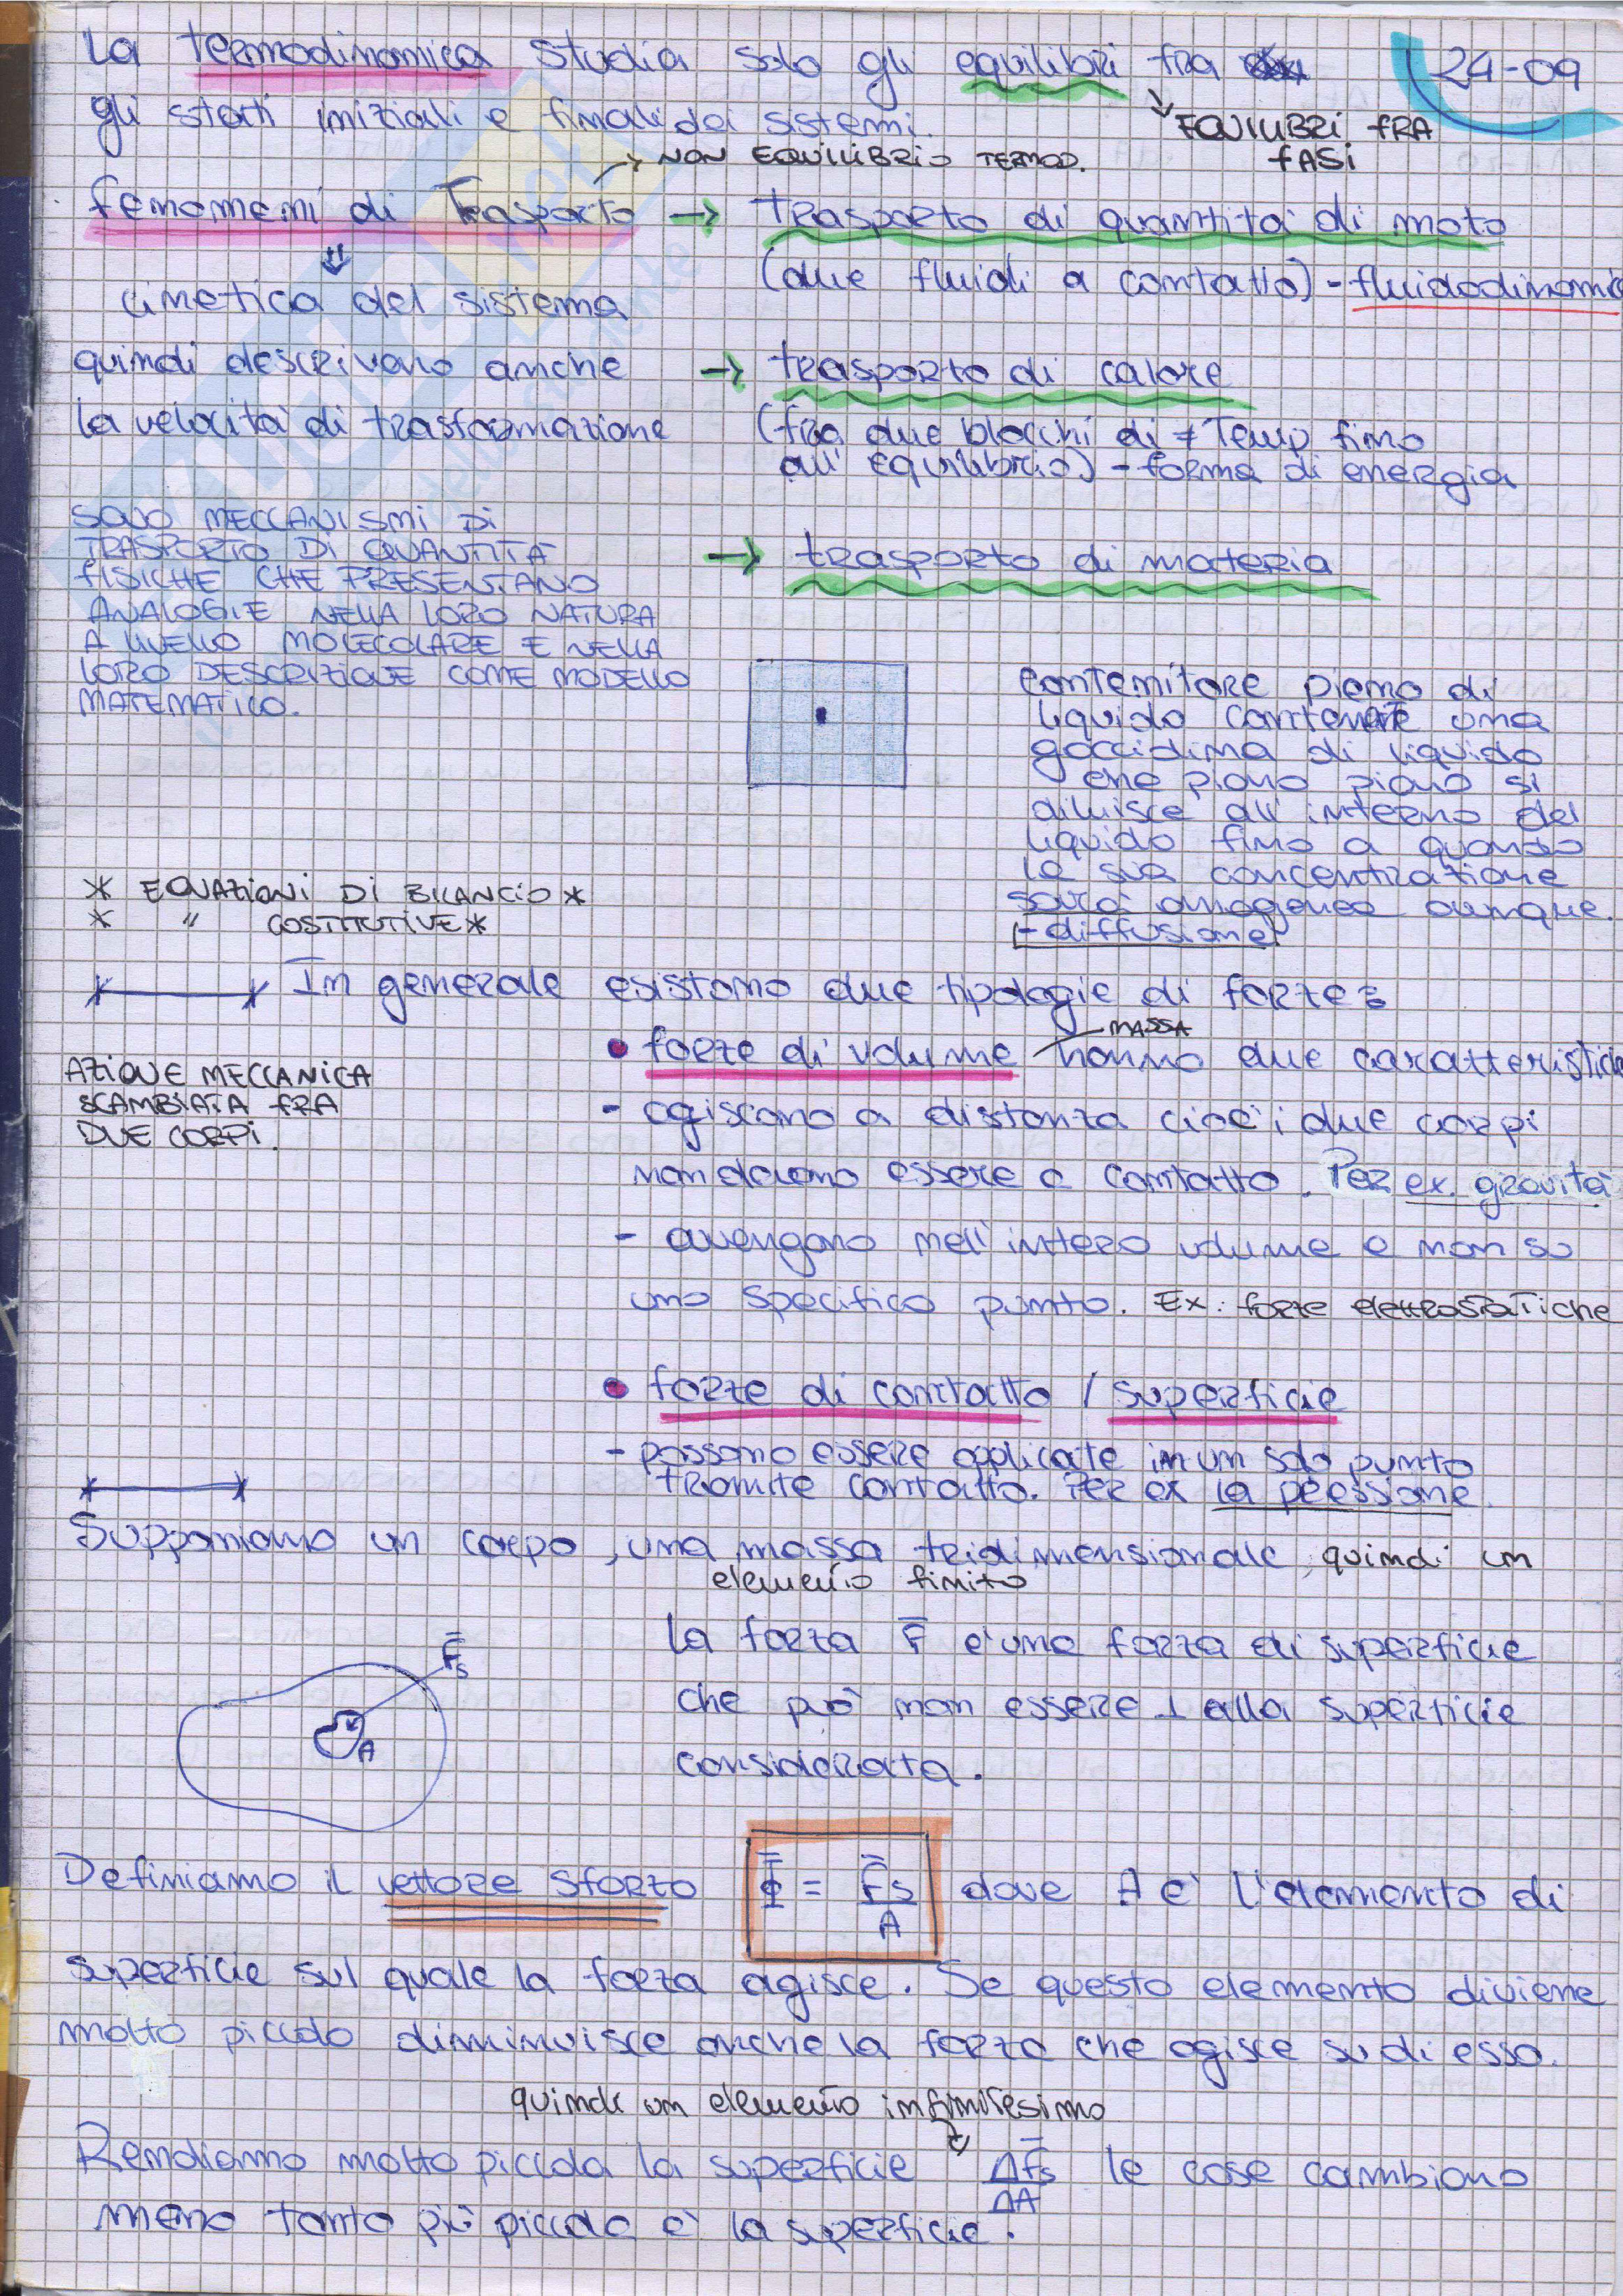 La termodinamica studia solo gli equilibri fra
24-09
gli stati iniziali e finali dei sistemi.
EQUILIBRI FRA
FASI
NON EQUILIBRIO TERMOD.
fenomeni di Trasporto → trasporto di quantità di moto
(due fluidi a contatto) - fluidodinamica
⇓
cinetica del sistema
quindi descrivono anche
la velocità di trasformazione
→ trasporto di calore
(fra due blocchi di ≠ Temp fino
all'equilibrio) - forma di energia
SONO MECCANISMI DI
TRASPORTO DI QUANTITÀ
FISICHE CHE PRESENTANO
ANALOGIE NELLA LORO NATURA
A LIVELLO MOLECOLARE E NELLA
LORO DESCRIZIONE COME MODELLO
MATEMATICO.
→ trasporto di materia
contenitore pieno di
liquido contenente una
gocciolina di liquido
che piano piano si
diluisce all'interno del
liquido fino a quando
la sua concentrazione
sarà omogenea ovunque.
- diffusione
* EQUAZIONI DI BILANCIO *
* " COSTITUTIVE *
In generale esistono due tipologie di forze:
MASSA
• forze di volume hanno due caratteristiche
AZIONE MECCANICA
SCAMBIATA FRA
DUE CORPI.
- agiscono a distanza cioè i due corpi
non devono essere a contatto. Per ex. gravità
- avvengono nell'intero volume e non su
uno specifico punto. Ex: forze elettrostatiche
• forze di contatto / superficie
- possono essere applicate in un solo punto
tramite contatto. Per ex la pressione.
Supponiamo un corpo, una massa tridimensionale, quindi un
elemento finito
F̄s
A
La forza F̄ è una forza di superficie
che può non essere ⊥ alla superficie
considerata.
Definiamo il vettore sforzo Φ̄ = F̄s/A dove A è l'elemento di
superficie sul quale la forza agisce. Se questo elemento diviene
molto piccolo diminuisce anche la forza che agisce su di esso.
quindi un elemento infinitesimo
Rendiamo molto piccola la superficie ΔF̄s/ΔA le cose cambiano
meno tanto più piccola è la superficie.